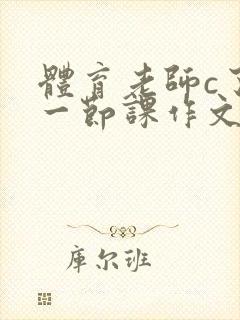 體育老師c
一節課作文
庫尔班